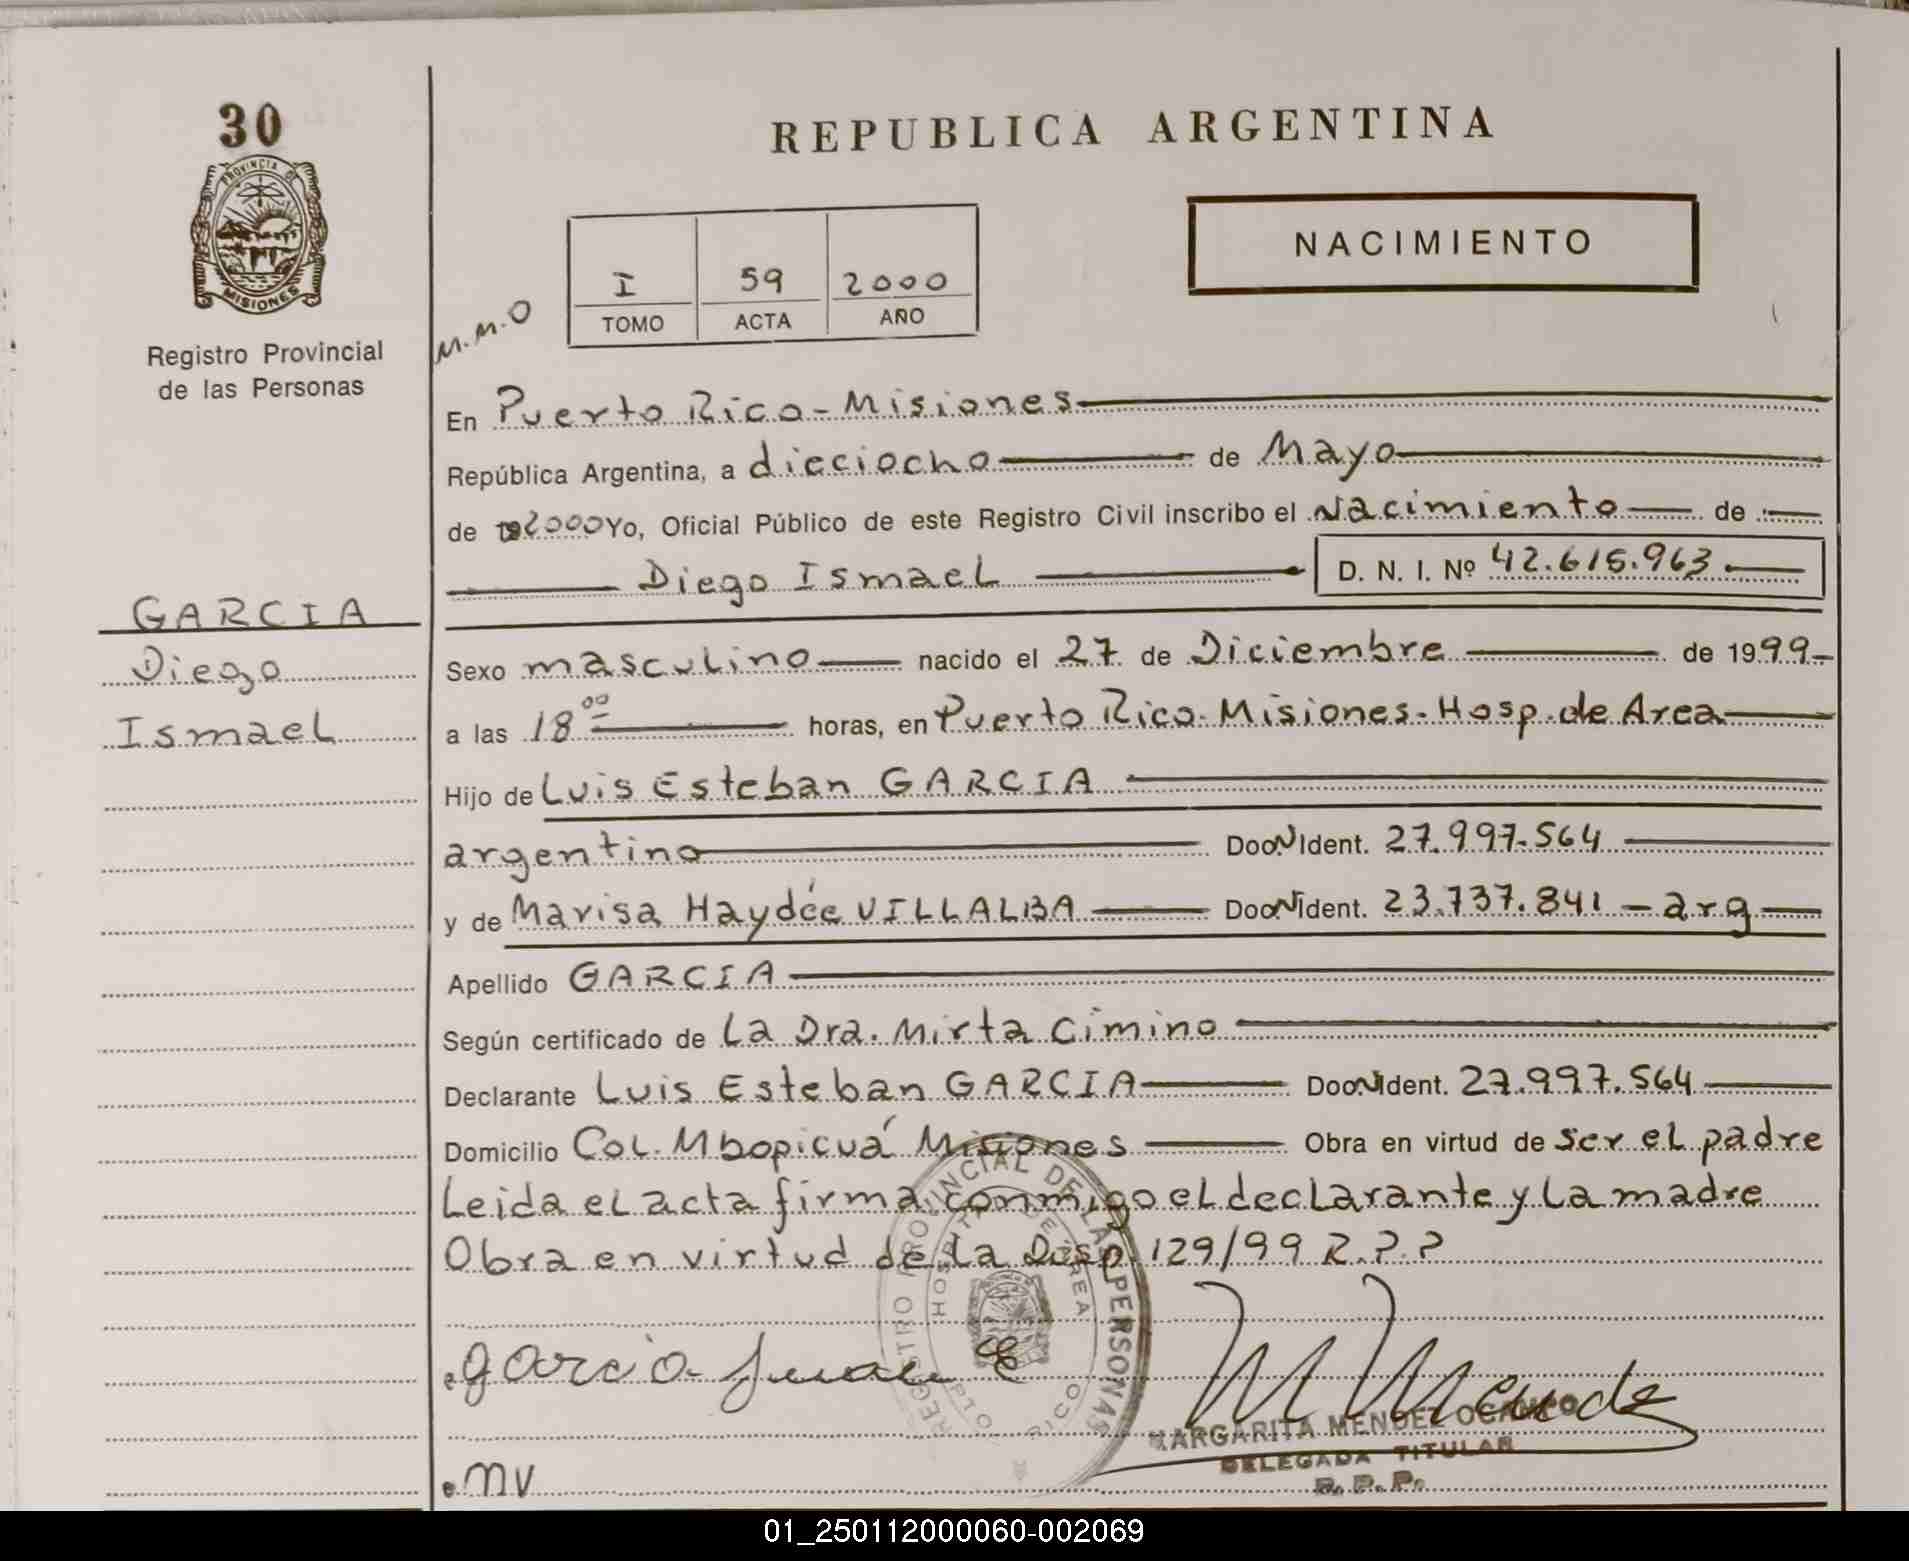 30
PROVINCIA DE
MISIONES
Registro Provincial
de las Personas
GARCIA
Diego
Ismael
REPUBLICA ARGENTINA
NACIMIENTO
I 59 2000
TOMO ACTA AÑO
M.M.O
En Puerto Rico - Misiones
República Argentina, a dieciocho de Mayo
de 19 2000 Yo, Oficial Público de este Registro Civil inscribo el Nacimiento de
Diego Ismael D. N. I. Nº 42.615.963.
Sexo masculino nacido el 27 de Diciembre de 1999-
a las 18 00 horas, en Puerto Rico. Misiones. Hosp. de Area
Hijo de Luis Esteban GARCIA
argentino Doc. N Ident. 27.997.564
y de Marisa Haydée VILLALBA Doc. N Ident. 23.737.841 - arg
Apellido GARCIA
Según certificado de La Dra. Mirta Cimino
Declarante Luis Esteban GARCIA Doc. N Ident. 27.997.564
Domicilio Col. Mbopicuá Misiones Obra en virtud de ser el padre
Leida el acta firma conmigo el declarante y la madre
Obra en virtud de la Disp. 129/99 R.P.P
REGISTRO PROVINCIAL DE LAS PERSONAS
HOSPITAL DE AREA
PTO RICO
garcia E
M Mende
MARGARITA MENDEZ OCAMPO
DELEGADA TITULAR
R. P. P.
MV
01_250112000060-002069